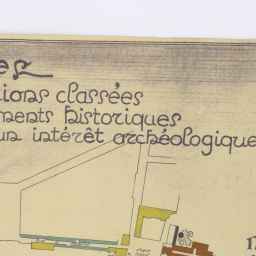 ions classées
ments historiques
un intérêt archéologique